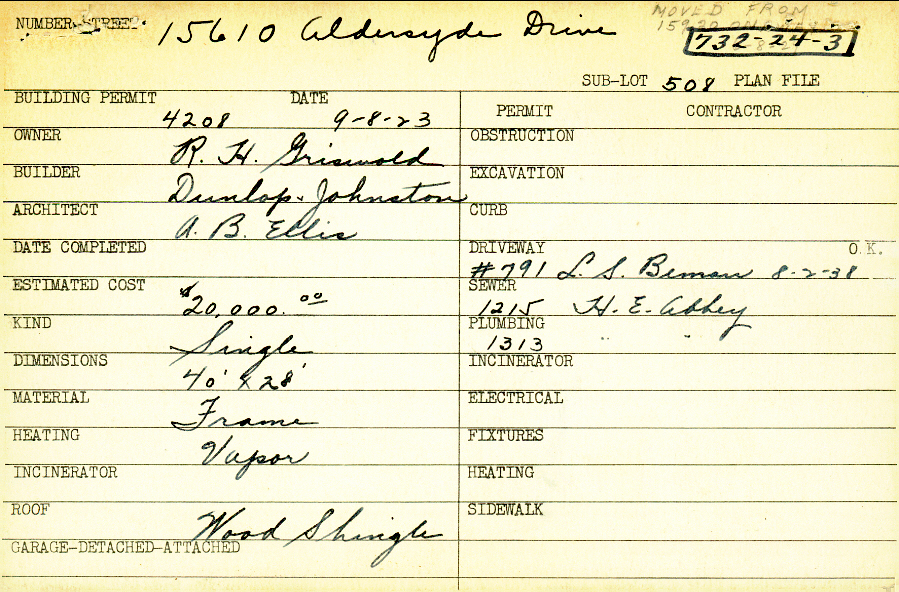 NUMBER STREET 15610 Aldersyde Drive
MOVED FROM
732-24-3
SUB-LOT 508 PLAN FILE
BUILDING PERMIT DATE
4208 9-8-23
PERMIT CONTRACTOR
OWNER R. H. Griswold
OBSTRUCTION
BUILDER Dunlop-Johnston
EXCAVATION
ARCHITECT A. B. Ellis
CURB
DATE COMPLETED
DRIVEWAY O.K.
#791 L. S. Beman 8-2-38
ESTIMATED COST $20,000.00
SEWER
1215 H. E. Abbey
KIND Single
PLUMBING
1313 " "
DIMENSIONS 40' x 28'
INCINERATOR
MATERIAL Frame
ELECTRICAL
HEATING Vapor
FIXTURES
INCINERATOR
HEATING
ROOF Wood Shingle
SIDEWALK
GARAGE-DETACHED-ATTACHED